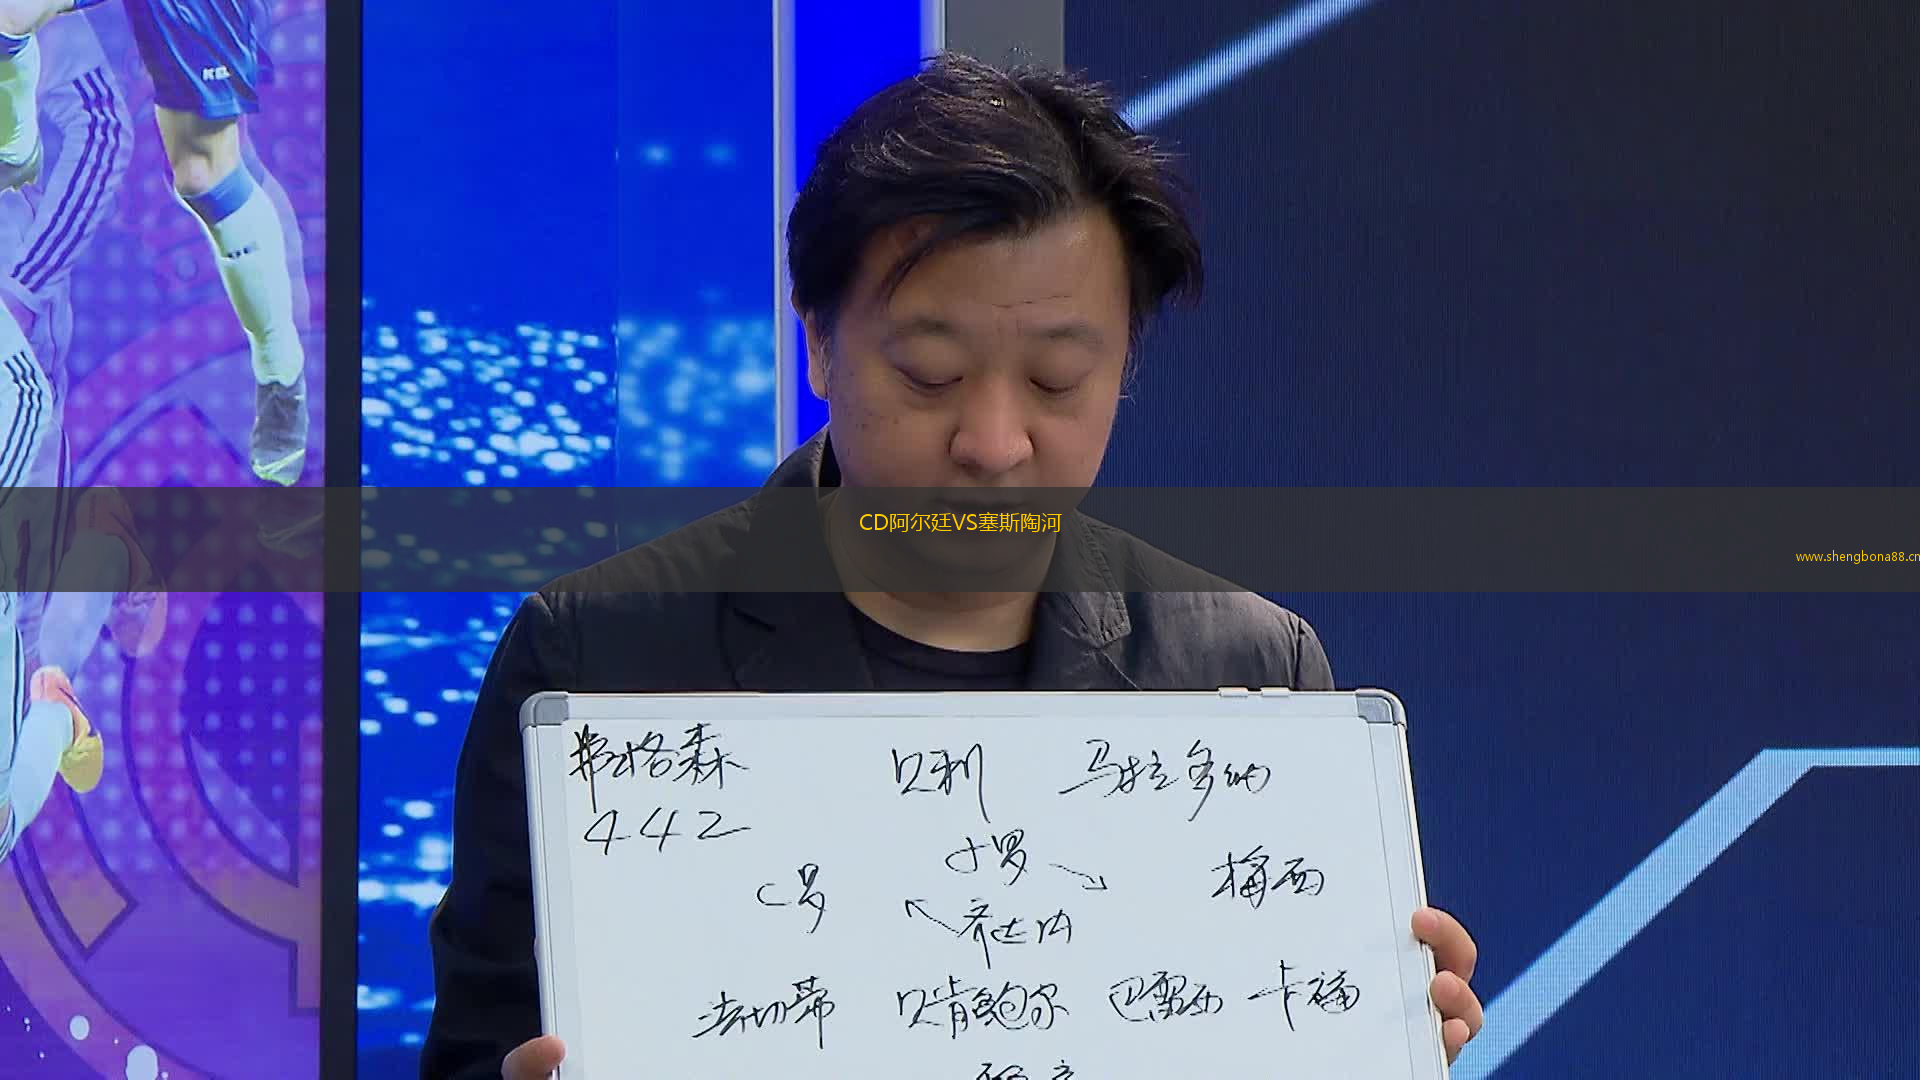 CD阿尔廷VS塞斯陶河
www.shengbona88.cn
弗格森 贝利 马拉多纳
442
小罗
C罗 梅西
齐达内
法切蒂 贝肯鲍尔 巴雷西 卡福